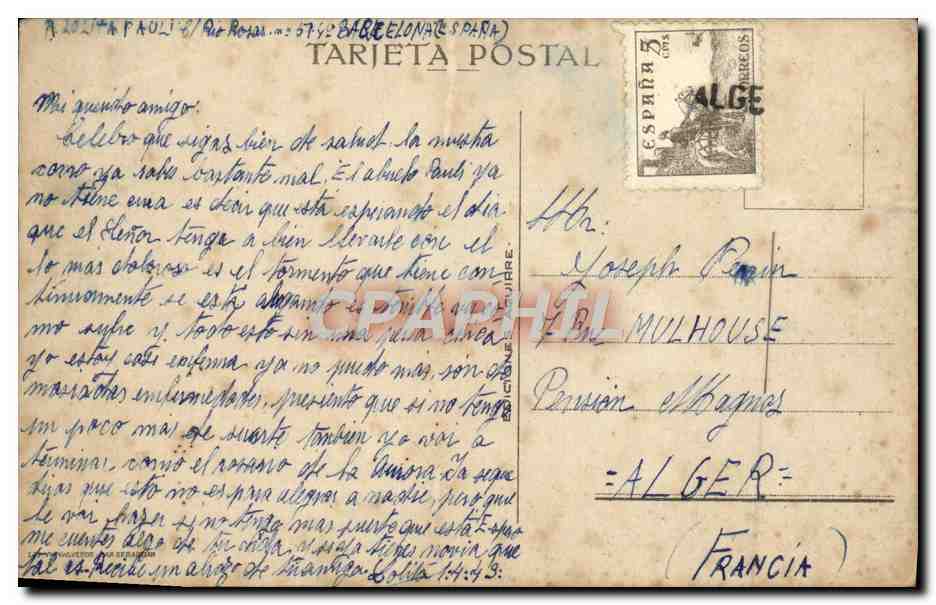 LOLITA PAULI C/ Rio Rosas. nº 57 4º BARCELONA (ESPAÑA)
TARJETA POSTAL
ESPAÑA 5 CTS.
CORREOS
ALGE
Mi querido amigo:
Celebro que sigas bien de salud. la nuestra
como ya sabes bastante mal. El abuelo Pauli ya
no tiene cura es decir que está esperando el dia
que el Señor tenga a bien llevarse con el
lo mas doloroso es el tormento que tiene con
tinuamente se está ahogando es terrible
mo sufre y todo esto sin una
yo estoy casi enferma ya no puedo mas, son de
masiadas enfermedades, presiento que si no tengo
un poco mas de suerte tambien yo voi a
terminar como el rosario de la Aurora Ya se que
dirás que esto no es para alegrar a nadie, pero que
le voi hazer si no tengo mas suerte que está Espero
me cuentes algo de tu vida, y si ya tienes novia que
tal es. Recibe un abrazo de tu amiga. Lolita 1.4.49.
EDICIONES AGUIRRE.
SAN SEBASTIAN
CPAPHIL
Mr:
Joseph Perin
7 Rue MULHOUSE
Pensión Magnos
=ALGER=
(FRANCIA)